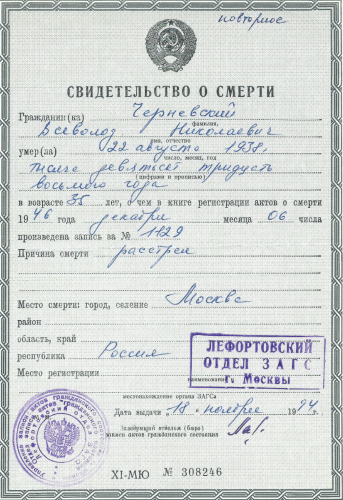 повторное
СВИДЕТЕЛЬСТВО О СМЕРТИ
Гражданин(ка) Черневский
фамилия,
Всеволод Николаевич
имя, отчество
умер(ла) 22 августа 1938г
число, месяц, год
тысяча девятьсот тридцать
(цифрами и прописью)
восьмого года
в возрасте 35 лет, о чем в книге регистрации актов о смерти
1946 года декабря месяца 06 числа
произведена запись за № 1129
Причина смерти расстрел
Место смерти: город, селение Москва
район
область, край
республика Россия
Место регистрации
ЛЕФОРТОВСКИЙ
ОТДЕЛ ЗАГС
г. Москвы
наименование
местонахождение органа ЗАГСа
Дата выдачи „18" ноября 1994г.
Заведующий отделом (бюро)
записи актов гражданского состояния
XI-МЮ № 308246